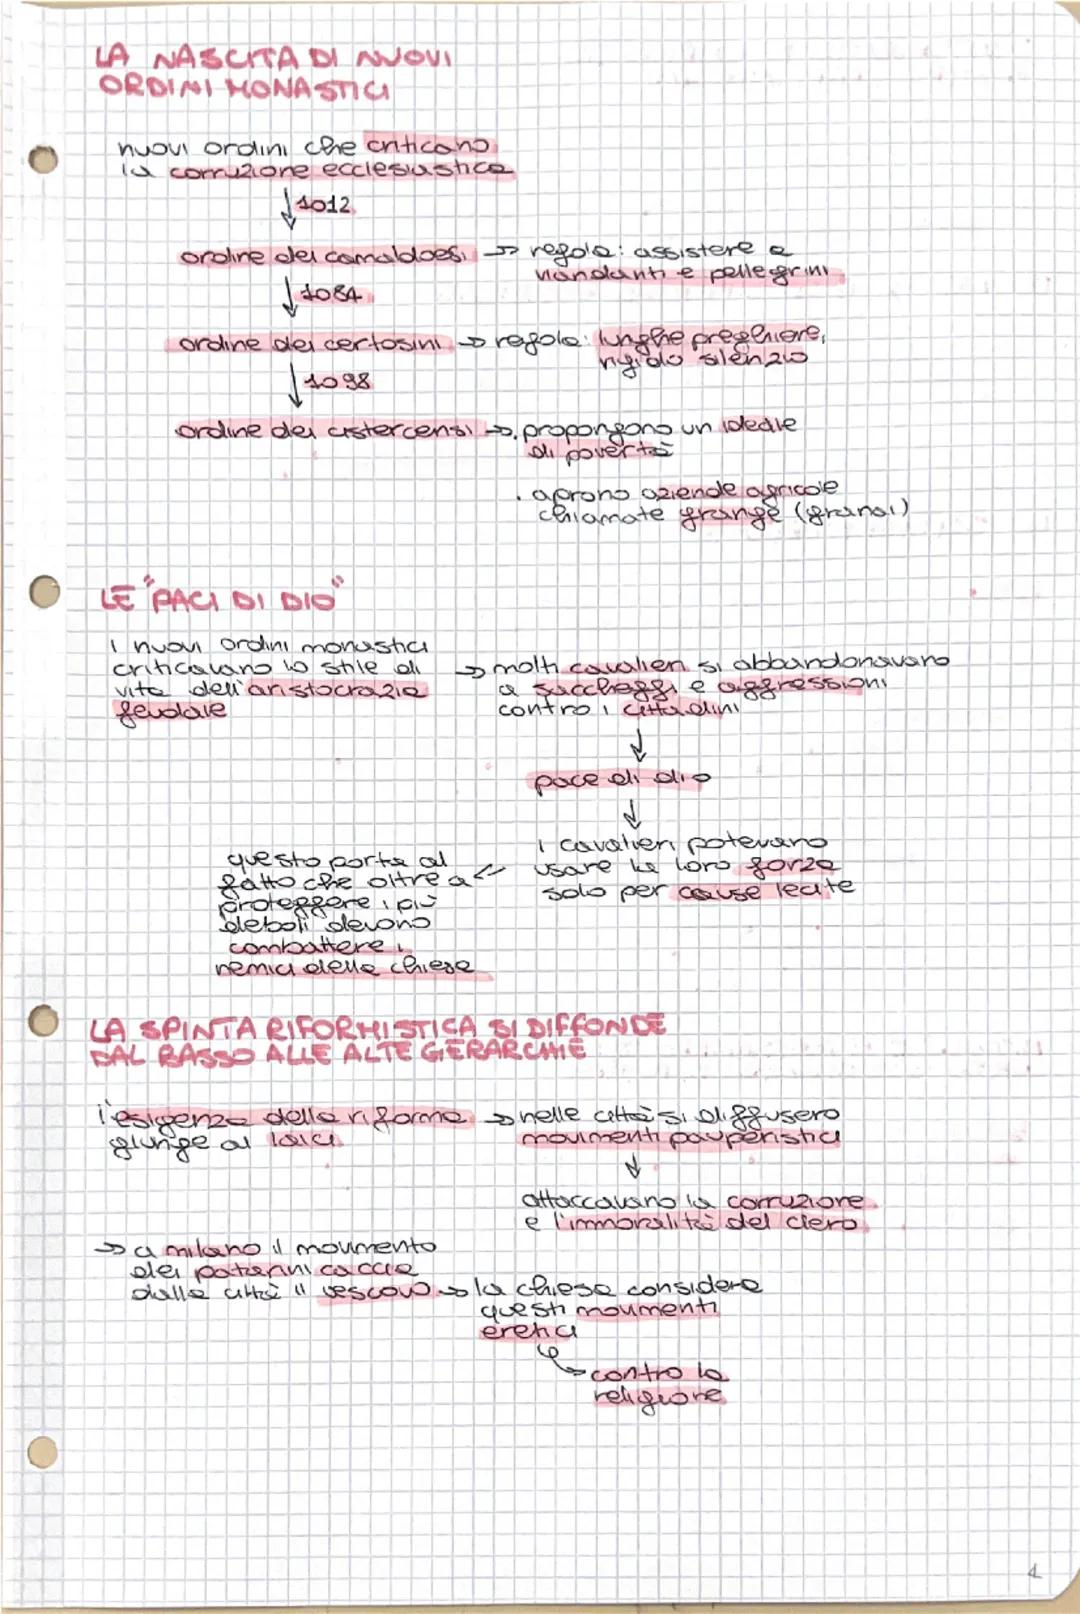 LA NASCITA DI NUOVI
ORDINI MONASTICI
nuovi ordini che criticano
la corruzione ecclesiastica
↓ 1012
ordine dei camaldoesi → regola: assistere a
viandanti e pellegrini
↓ 1084
ordine dei certosini → regola: lunghe preghiere,
rigido silenzio
↓ 1098
ordine dei cistercensi → . propongono un ideale
di povertà
. aprono aziende agricole
chiamate grange (granai)
LE "PACI DI DIO"
i nuovi ordini monastici
criticavano lo stile di
vita dell'aristocrazia
feudale
→ molti cavalieri si abbandonavano
a saccheggi e aggressioni
contro i cittadini
↓
pace di dio
↓
i cavalieri potevano
usare la loro forza
solo per cause lecite
questo porta al ←
fatto che oltre a
proteggere i più
deboli devono
combattere i
nemici della chiesa
LA SPINTA RIFORMISTICA SI DIFFONDE
DAL BASSO ALLE ALTE GERARCHIE
l'esigenza della riforma → nelle città si diffusero
giunge ai laici
movimenti pauperistici
↓
attaccavano la corruzione
e l'immoralità del clero
→ a milano il movimento
dei patarini caccia
dalla città il vescovo → la chiesa considera
questi movimenti
eretici
→ contro la
religione
4